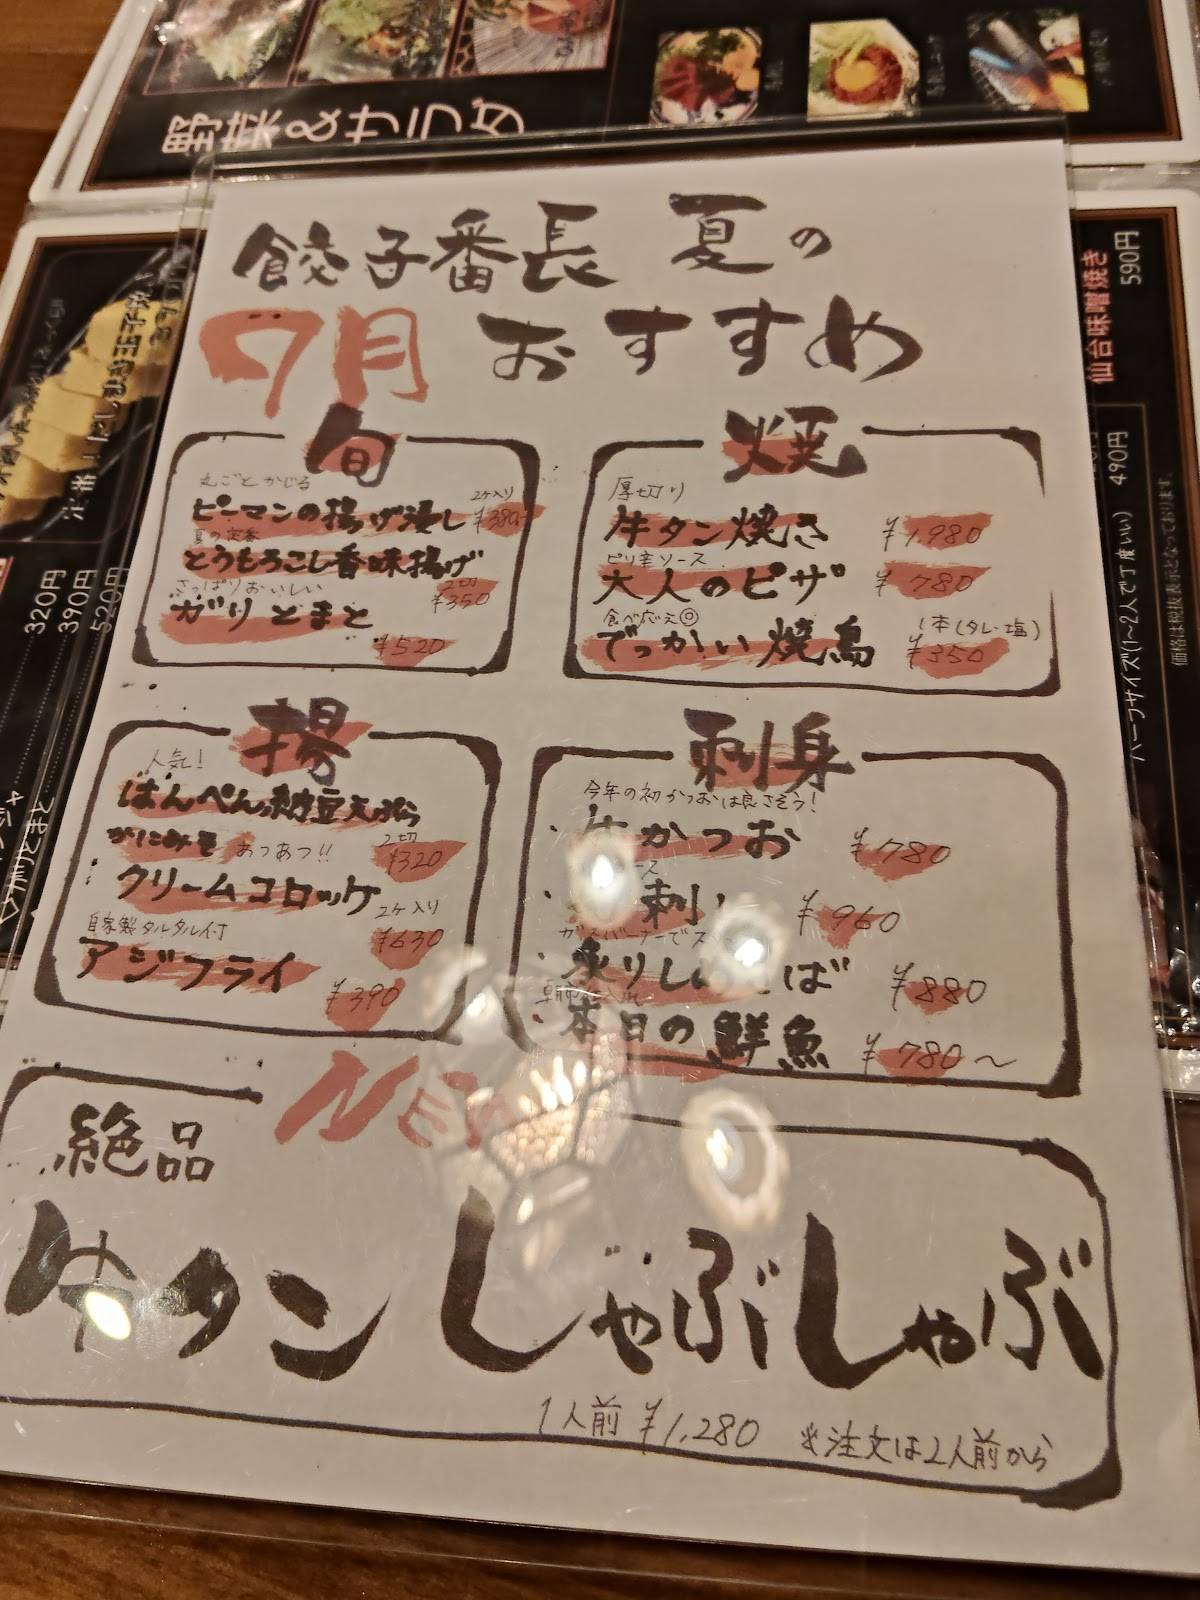 野菜&サラダ
餃子番長 夏の
7月 おすすめ
旬
丸ごとかじる
ピーマンの揚げ浸し 2ヶ入り ¥380
夏の定番
とうもろこし香味揚げ 2切 ¥350
さっぱりおいしい
ガリとまと
¥520
焼
厚切り
牛タン焼き ¥1,980
ピリ辛ソース
大人のピザ ¥780
食べ応え◎
でっかい焼鳥 1本(タレ・塩) ¥350
揚
人気!
はんぺん納豆天ぷら
2切 ¥320
かにみそ あつあつ!!
クリームコロッケ
2ヶ入り ¥630
自家製タルタル付
アジフライ
¥390
刺身
今年の初かつおは良さそう!
・生かつお ¥780
・刺し ¥960
ガスバーナーで
・炙りしめさば ¥880
・本日の鮮魚 ¥780〜
NEW
絶品
牛タンしゃぶしゃぶ
1人前 ¥1,280 ※注文は2人前から
仙台味噌焼き
590円
ハーフサイズ(1~2人で丁度いい) 490円
価格は税抜表示となっております。
320円
390円
520円
ガリとまと